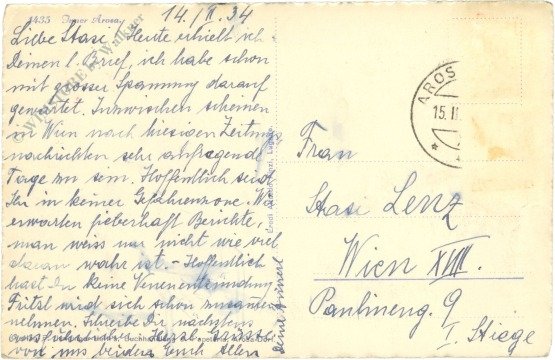 1435 Inner Arosa
14./II. 34
Liebe Stasi! Heute erhielt ich
Deinen l. Brief, ich habe schon
mit grosser Spannung darauf
gewartet. Inzwischen scheinen
in Wien nach hiesigen Zeitungs-
nachrichten sehr aufregende
Tage zu sein. Hoffentlich seid
Ihr in keiner Gefahrenzone. Wir
erwarten fieberhaft Berichte,
man weiss nur nicht wie viel
daran wahr ist. - Hoffentlich
hast Du keine Venenentzündung
Fritzl wird sich schon zusammen-
nehmen. Schreibe Du nächstens
ausführlich. Herzl. Grüsse
von uns beiden Euch Allen
Deine
AROS
15.II
Frau
Stasi Lenz
Wien XVIII.
Paulineng. 9
I. Stiege